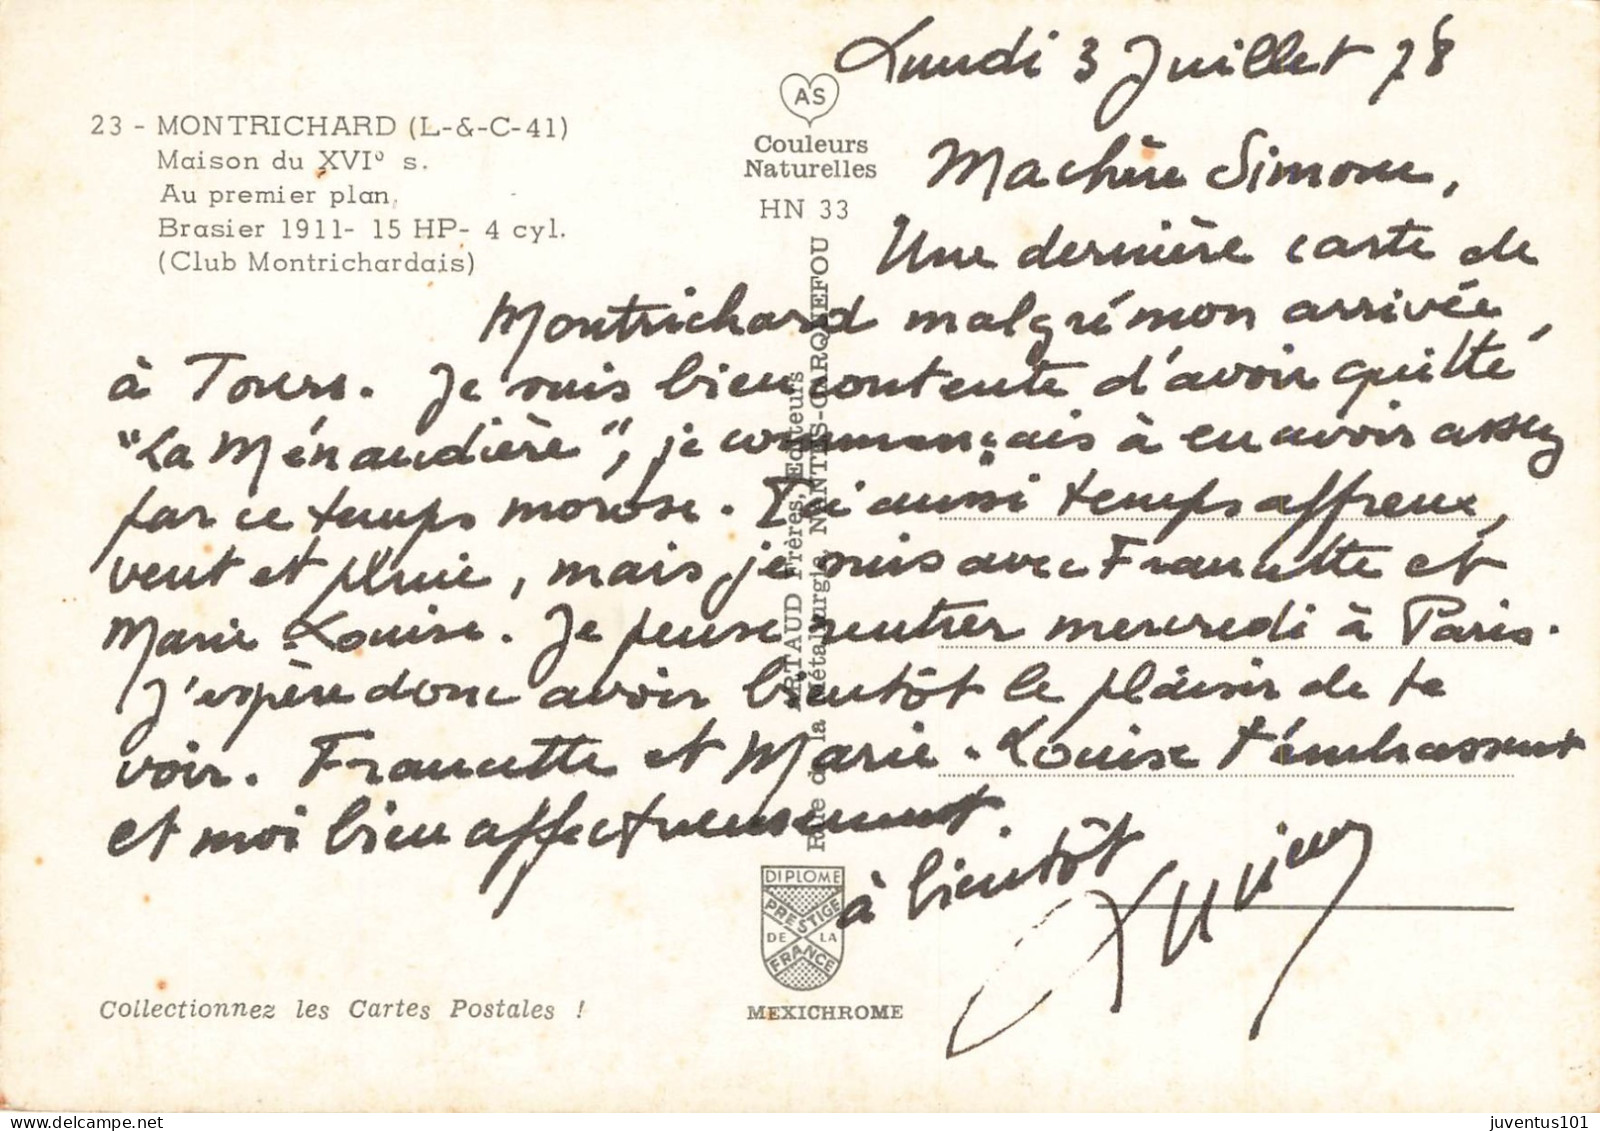 Lundi 3 Juillet 78
23 - MONTRICHARD (L-&-C-41)
Maison du XVI° s.
Au premier plan,
Brasier 1911- 15 HP- 4 cyl.
(Club Montrichardais)
AS
Couleurs
Naturelles
HN 33
ARTAUD Frères, Editeurs
Rue de la Métallurgie, NANTES-CARQUEFOU
Ma chère Simone,
Une dernière carte de
Montrichard malgré mon arrivée
à Tours. Je suis bien contente d'avoir quitté
"La Ménaudière", je commençais à en avoir assez
par ce temps morose. Ici aussi temps affreux,
vent et pluie, mais je suis avec Francette et
Marie Louise. Je pense rentrer mercredi à Paris.
J'espère donc avoir bientôt le plaisir de te
voir. Francette et Marie-Louise t'embrassent
et moi bien affectueusement.
à bientôt
DIPLOME
PRESTIGE
DE LA
FRANCE
MEXICHROME
Collectionnez les Cartes Postales !
juventus101